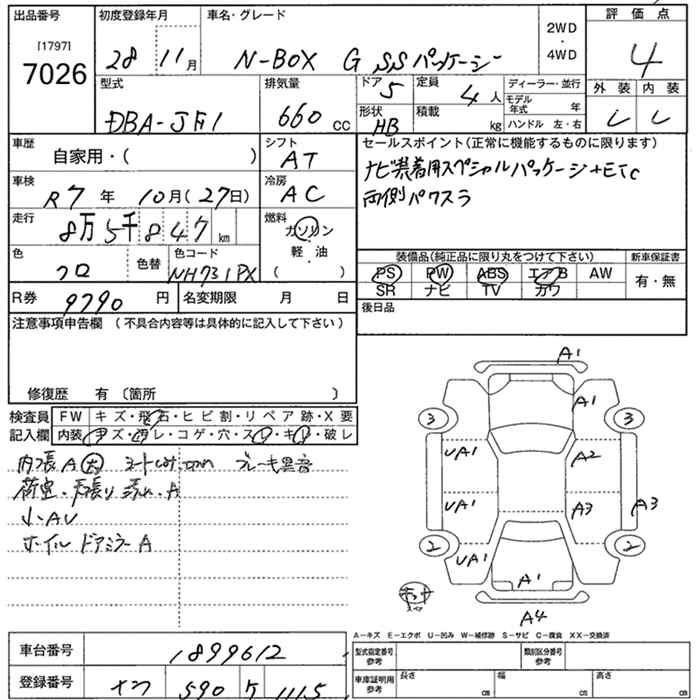 出品番号 初度登録年月 車名・グレード 2WD・4WD 評価点
[1797]
7026
28 11月 N-BOX G SSパッケージ 4
型式 排気量 ドア 5 定員 4人 ディーラー・並行 外装 内装
DBA-JF1 660cc 形状 HB 積載 kg モデル年式 年 ハンドル 左・右
車歴 シフト セールスポイント(正常に機能するものに限ります)
自家用・( ) AT ナビ装着用スペシャルパッケージ+ETC
車検 冷房 両側パワスラ
R7年 10月(27日) AC
走行 燃料
8万5千847km ガソリン
軽・油
( )
色 色替 色コード 装備品(純正品に限り丸をつけて下さい) 新車保証書
クロ NH731PX PS PW ABS エアB AW 有・無
SR ナビ TV カワ
R券 9790円 名変期限 月 日 後日品
注意事項申告欄 (不具合内容等は具体的に記入して下さい)
修復歴 有〔箇所 〕
検査員記入欄 FW キズ・飛石・ヒビ割・リペア跡・X要
内装 キズ・汚レ・コゲ・穴・スレ・キレ・破レ
内張A大 シート 切れ ブレーキ異音
荷室・天張り 汚れ・A
小AU
ホイル ドアミラーA
A1
A1
3 3
UA1 A2
UA1 A3 A3
2 2
UA1 A1
A4
A−キズ E−エクボ U−凹み W−補修跡 S−サビ C−腐食 XX−交換済
車台番号 1899612 型式指定番号 参考 類別区分番号 参考
登録番号 590 1115 車庫証明用 参考 長さ cm 幅 cm 高さ cm